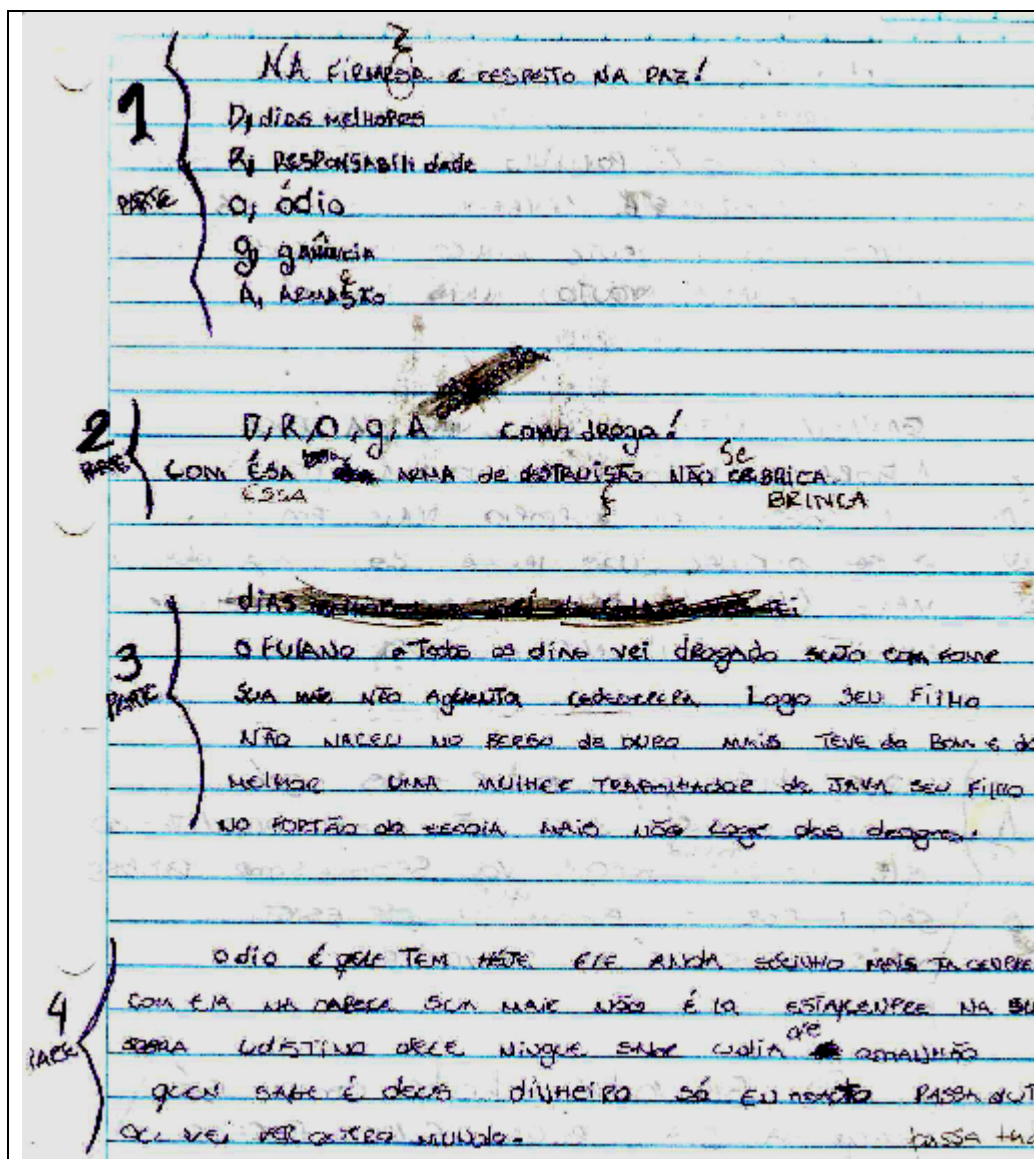 Z
NA FIRMESA E RESPEITO NA PAZ!
1 PARTE
D, dias MELHORES
R, RESPONSABILIdade
O, ódio
g, gANÂNCIA
A, ARMAÇÃO
2 PARTE
D, R, O, g, A COMO dROGA!
COM ÉSA ARMA de dESTRUISÃO NÃO SE BRICA
ESSA Ç BRINCA
dIAS
3 PARTE
O FULANO e Todos os dias vei drogado SUJO com FOME
SUA MÃE NÃO AGUENTA Logo SEU FILHO
NÃO NACEU NO BERSO de OURO MAIS TEVE do BOM E do
MELHOR UMA MULHER TRABALHADOR SEU FILHO
NO PORTÃO da ESCOLA MAIS NÃO LOGE das drogas.
4 PARTE
Odio É QELE TEM ELE ANDA SOSINHO MAIS TA CENPRE
COM ELA NA CABEÇA SUA MAIE NÃO É LA ESTA CENPRE NA SU
SOBRA UDISTINO DELE NINGUE SABE UDIA de AMANHÃO
QUEN SABE É DEUS DINHEIRO SÓ EU PASSA OUT
VEI OUTRO MUNDO. passa